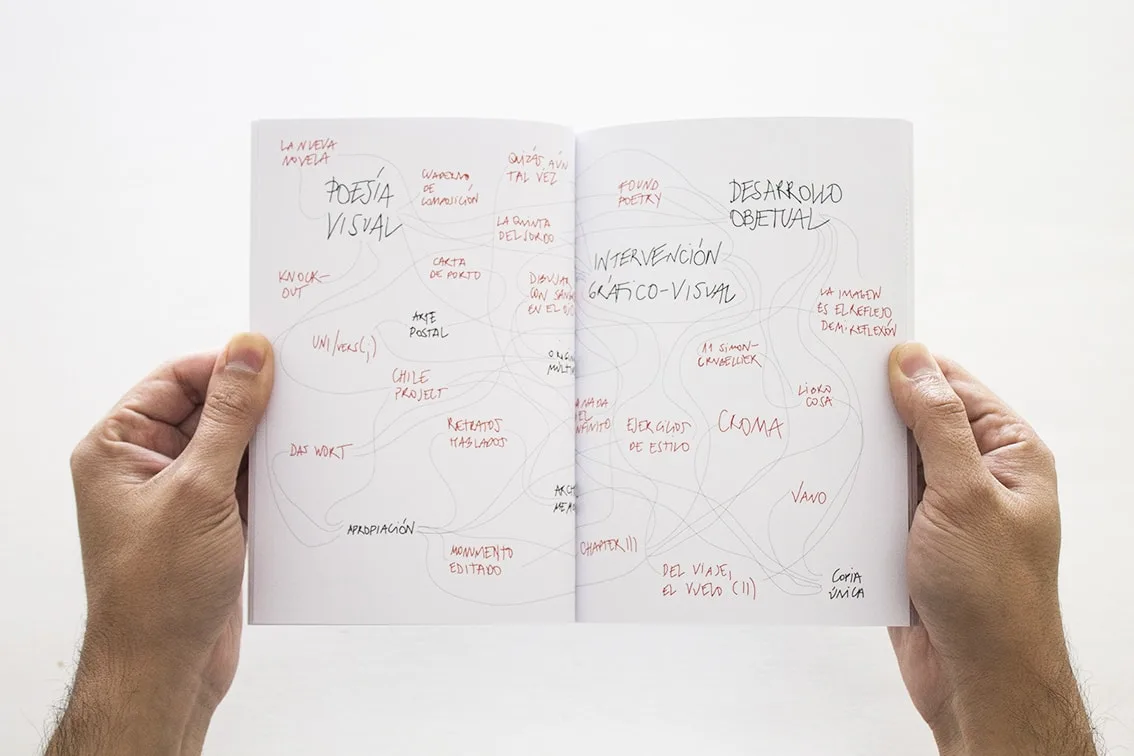 LA NUEVA
NOVELA
POESÍA
VISUAL
CUADERNO
DE
COMPOSICIÓN
QUIZÁS AÚN
TAL VEZ
LA QUINTA
DEL SORDO
KNOCK-
OUT
CARTA
DE PORTO
DIBUJAR
CON
EN EL
ARTE
POSTAL
UNI/VERS(;)
CHILE
PROJECT
RETRATOS
DAS WORT
APROPIACIÓN
MONUMENTO
EDITADO
FOUND
POETRY
DESARROLLO
OBJETUAL
INTERVENCIÓN
GRÁFICO-VISUAL
LA IMAGEN
ES EL REFLEJO
DE MI REFLEXIÓN
11 SIMON-
CRUBELLIER
LIBRO
COSA
NADA
EL
EJERCICIOS
DE ESTILO
CROMA
VANO
CHAPTER III
DEL VIAJE,
EL VUELO (II)
COPIA
ÚNICA